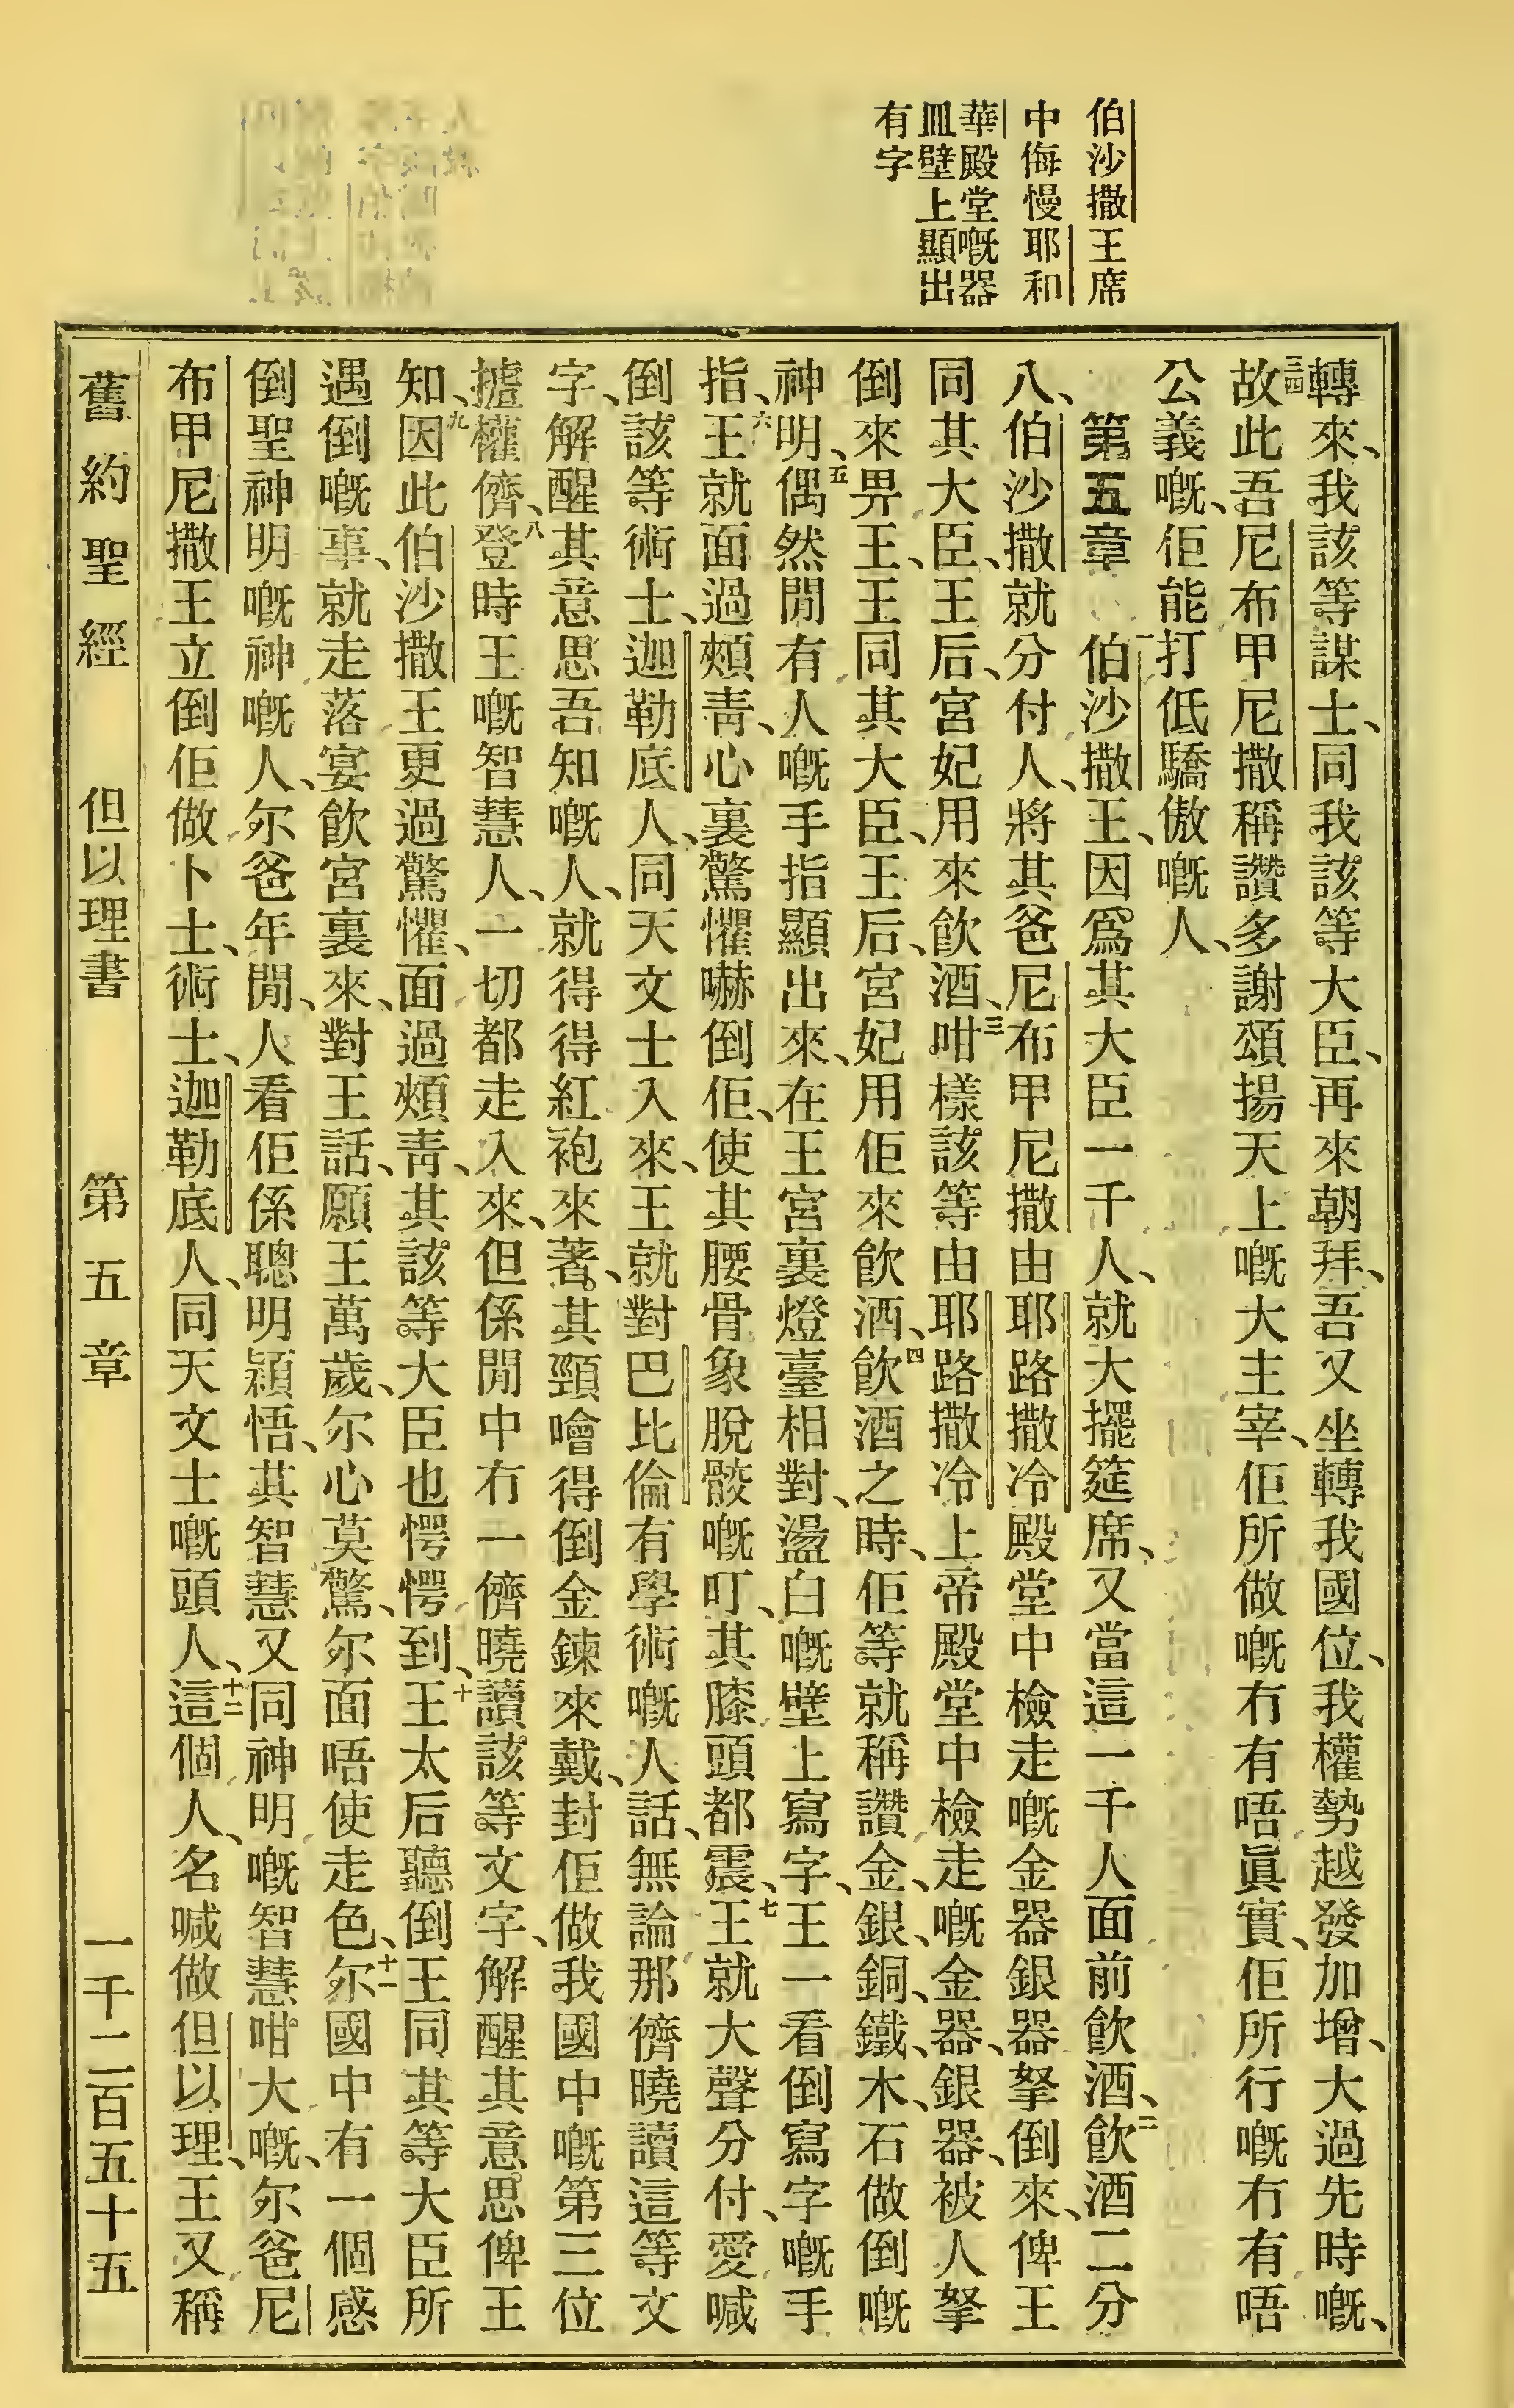 伯沙撒王席
中侮慢耶和
華殿堂嘅器
皿壁上顯出
有字
轉來、我該等謀士、同我該等大臣、再來朝拜、吾又坐轉我國位、我權勢越發加增、大過先時嘅、
三四故此吾尼布甲尼撒稱讚多謝頌揚天上嘅大主宰、佢所做嘅冇有唔眞實、佢所行嘅冇有唔
公義嘅、佢能打低驕傲嘅人、
第五章 一伯沙撒王、因爲其大臣一千人、就大擺筵席、又當這一千人面前飮酒、二飮酒二分
八、伯沙撒就分付人、將其爸尼布甲尼撒由耶路撒冷殿堂中檢走嘅金器銀器拏倒來、俾王
同其大臣、王后、宮妃用來飮酒、三咁樣該等由耶路撒冷上帝殿堂中檢走嘅金器、銀器、被人拏
倒來畀王、王同其大臣、王后、宮妃用佢來飮酒、四飮酒之時、佢等就稱讚金、銀、銅、鐵、木、石做倒嘅
神明、五偶然閒有人嘅手指顯出來、在王宮裏燈臺相對、盪白嘅壁上寫字、王一看倒寫字嘅手
指、六王就面過頰靑、心裏驚懼嚇倒佢、使其腰骨象脫骹嘅叮、其膝頭都震、七王就大聲分付、愛喊
倒該等術士、迦勒底人、同天文士入來、王就對巴比倫有學術嘅人話、無論那儕曉讀這等文
字、解醒其意思吾知嘅人、就得得紅袍來著、其頸噲得倒金鍊來戴、封佢做我國中嘅第三位
攎權儕、八登時王嘅智慧人、一切都走入來、但係閒中冇一儕曉讀該等文字、解醒其意思俾王
知、九因此伯沙撒王更過驚懼、面過頰靑、其該等大臣也愕愕到、十王太后聽倒王同其等大臣所
遇倒嘅事、就走落宴飮宮裏來、對王話、願王萬歲、尔心莫驚、尔面唔使走色、十一尔國中有一個感
倒聖神明嘅神嘅人、尔爸年閒、人看佢係聰明穎悟、其智慧又同神明嘅智慧咁大嘅、尔爸尼
布甲尼撒王立倒佢做卜士、術士、迦勒底人、同天文士嘅頭人、十二這個人、名喊做但以理、王又稱
舊約聖經 但以理書 第五章 一千二百五十五